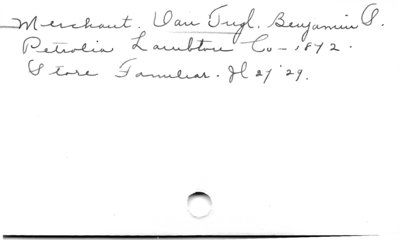 Merchant. Van Tuyl. Benjamin S.
Petrolia Lambton Co - 1872.
Store Familiar. Jl 27 '29.